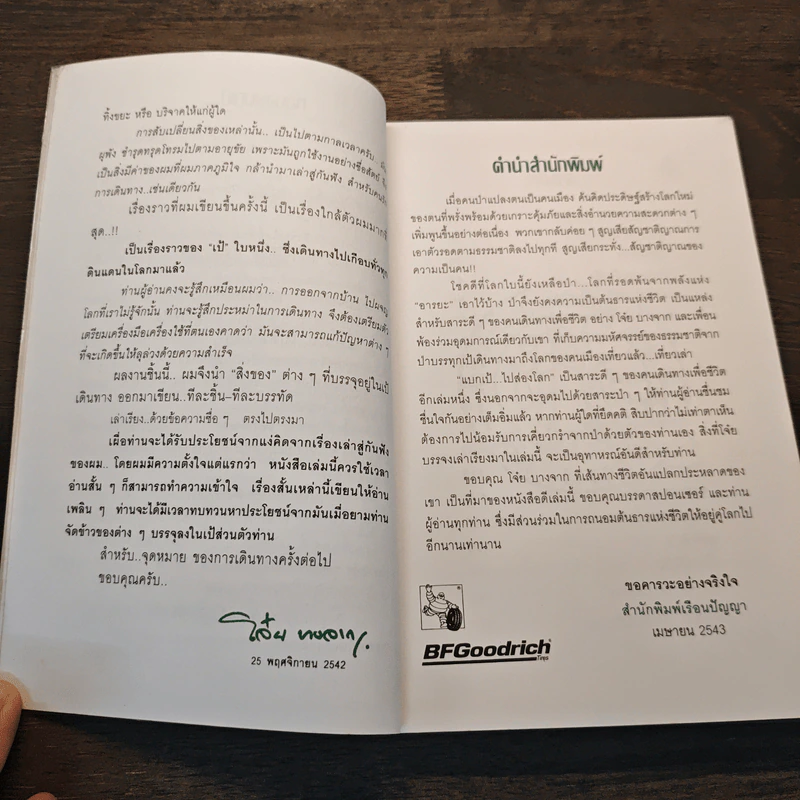 ทิ้งขยะ หรือ บริจาคให้แก่ผู้ใด
การสับเปลี่ยนสิ่งของเหล่านั้น.. เป็นไปตามกาลเวลาครับ..
ผุพัง ชำรุดทรุดโทรมไปตามอายุขัย เพราะมันถูกใช้งานอย่างซื่อสัตย์
เป็นสิ่งมีค่าของผมที่ผมภาคภูมิใจ กล้านำมาเล่าสู่กันฟัง สำหรับ
การเดินทาง..เช่นเดียวกัน
เรื่องราวที่ผมเขียนขึ้นครั้งนี้ เป็นเรื่องใกล้ตัวผมมาก
สุด..!!
เป็นเรื่องราวของ "เป้" ใบหนึ่ง.. ซึ่งเดินทางไปเกือบทั่วทุก
ดินแดนในโลกมาแล้ว
ท่านผู้อ่านคงจะรู้สึกเหมือนผมว่า.. การออกจากบ้าน
โลกที่เราไม่รู้จักนั้น ท่านจะรู้สึกประหม่าในการเดินทาง จึงต้องเตรียมตัว
เตรียมเครื่องมือเครื่องใช้ที่ตนเองคาดว่า มันจะสามารถแก้ปัญหาต่าง ๆ
ที่จะเกิดขึ้นให้ลุล่วงด้วยความสำเร็จ
ผลงานชิ้นนี้.. ผมจึงนำ "สิ่งของ" ต่าง ๆ ที่บรรจุอยู่ในเป้
เดินทาง ออกมาเขียน..ทีละชิ้น-ทีละบรรทัด
เล่าเรียง..ด้วยข้อความซื่อ ๆ ตรงไปตรงมา
เผื่อท่านจะได้รับประโยชน์จากแง่คิดจากเรื่องเล่าสู่กันฟัง
ของผม.. โดยผมมีความตั้งใจแต่แรกว่า หนังสือเล่มนี้ควรใช้เวลา
อ่านสั้น ๆ ก็สามารถทำความเข้าใจ เรื่องสั้นเหล่านี้เขียนให้อ่าน
เพลิน ๆ ท่านจะได้มีเวลาทบทวนหาประโยชน์จากมันเมื่อยามท่าน
จัดข้าวของต่าง ๆ บรรจุลงในเป้ส่วนตัวท่าน
สำหรับ..จุดหมาย ของการเดินทางครั้งต่อไป
ขอบคุณครับ..
โจ๋ย บางจาก
25 พฤศจิกายน 2542
คำนำสำนักพิมพ์
เมื่อคนป่าแปลงตนเป็นคนเมือง ค้นคิดประดิษฐ์สร้างโลกใหม่
ของตนที่พรั่งพร้อมด้วยเกราะคุ้มภัยและสิ่งอำนวยความสะดวกต่าง ๆ
เพิ่มพูนขึ้นอย่างต่อเนื่อง พวกเขากลับค่อย ๆ สูญเสียสัญชาติญาณการ
เอาตัวรอดตามธรรมชาติลงไปทุกที สูญเสียกระทั่ง...สัญชาติญาณของ
ความเป็นคน!!
โชคดีที่โลกใบนี้ยังเหลือป่า...โลกที่รอดพ้นจากพลังแห่ง
"อารยะ" เอาไว้บ้าง ป่าจึงยังคงความเป็นต้นธารแห่งชีวิต เป็นแหล่ง
สำหรับสาระดี ๆ ของคนเดินทางเพื่อชีวิต อย่าง โจ๋ย บางจาก และเพื่อน
พ้องร่วมอุดมการณ์เดียวกับเขา ที่เก็บความมหัศจรรย์ของธรรมชาติจาก
ป่าบรรทุกเป้เดินทางมาถึงโลกของคนเมืองเที่ยวแล้ว...เที่ยวเล่า
"แบกเป้...ไปส่องโลก" เป็นสาระดี ๆ ของคนเดินทางเพื่อชีวิต
อีกเล่มหนึ่ง ซึ่งนอกจากจะอุดมไปด้วยสาระป่า ๆ ให้ท่านผู้อ่านชื่นชม
ชื่นใจกันอย่างเต็มอิ่มแล้ว หากท่านผู้ใดที่ยึดคติ สิบปากว่าไม่เท่าตาเห็น
ต้องการไปน้อมรับการเคี่ยวกรำจากป่าด้วยตัวของท่านเอง สิ่งที่โจ๋ย
บรรจงเล่าเรียงมาในเล่มนี้ จะเป็นอุทาหรณ์อันดีสำหรับท่าน
ขอบคุณ โจ๋ย บางจาก ที่เส้นทางชีวิตอันแปลกประหลาดของ
เขา เป็นที่มาของหนังสือดีเล่มนี้ ขอบคุณบรรดาสปอนเซอร์ และท่าน
ผู้อ่านทุกท่าน ซึ่งมีส่วนร่วมในการถนอมต้นธารแห่งชีวิตให้อยู่คู่โลกไป
อีกนานเท่านาน
ขอคารวะอย่างจริงใจ
สำนักพิมพ์เรือนปัญญา
เมษายน 2543
BFGoodrich